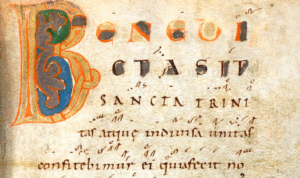 BENEDI
CTA SIT
SANCTA TRINI
tas atque indiuisa unitas
confitebimur ei quia fecit no